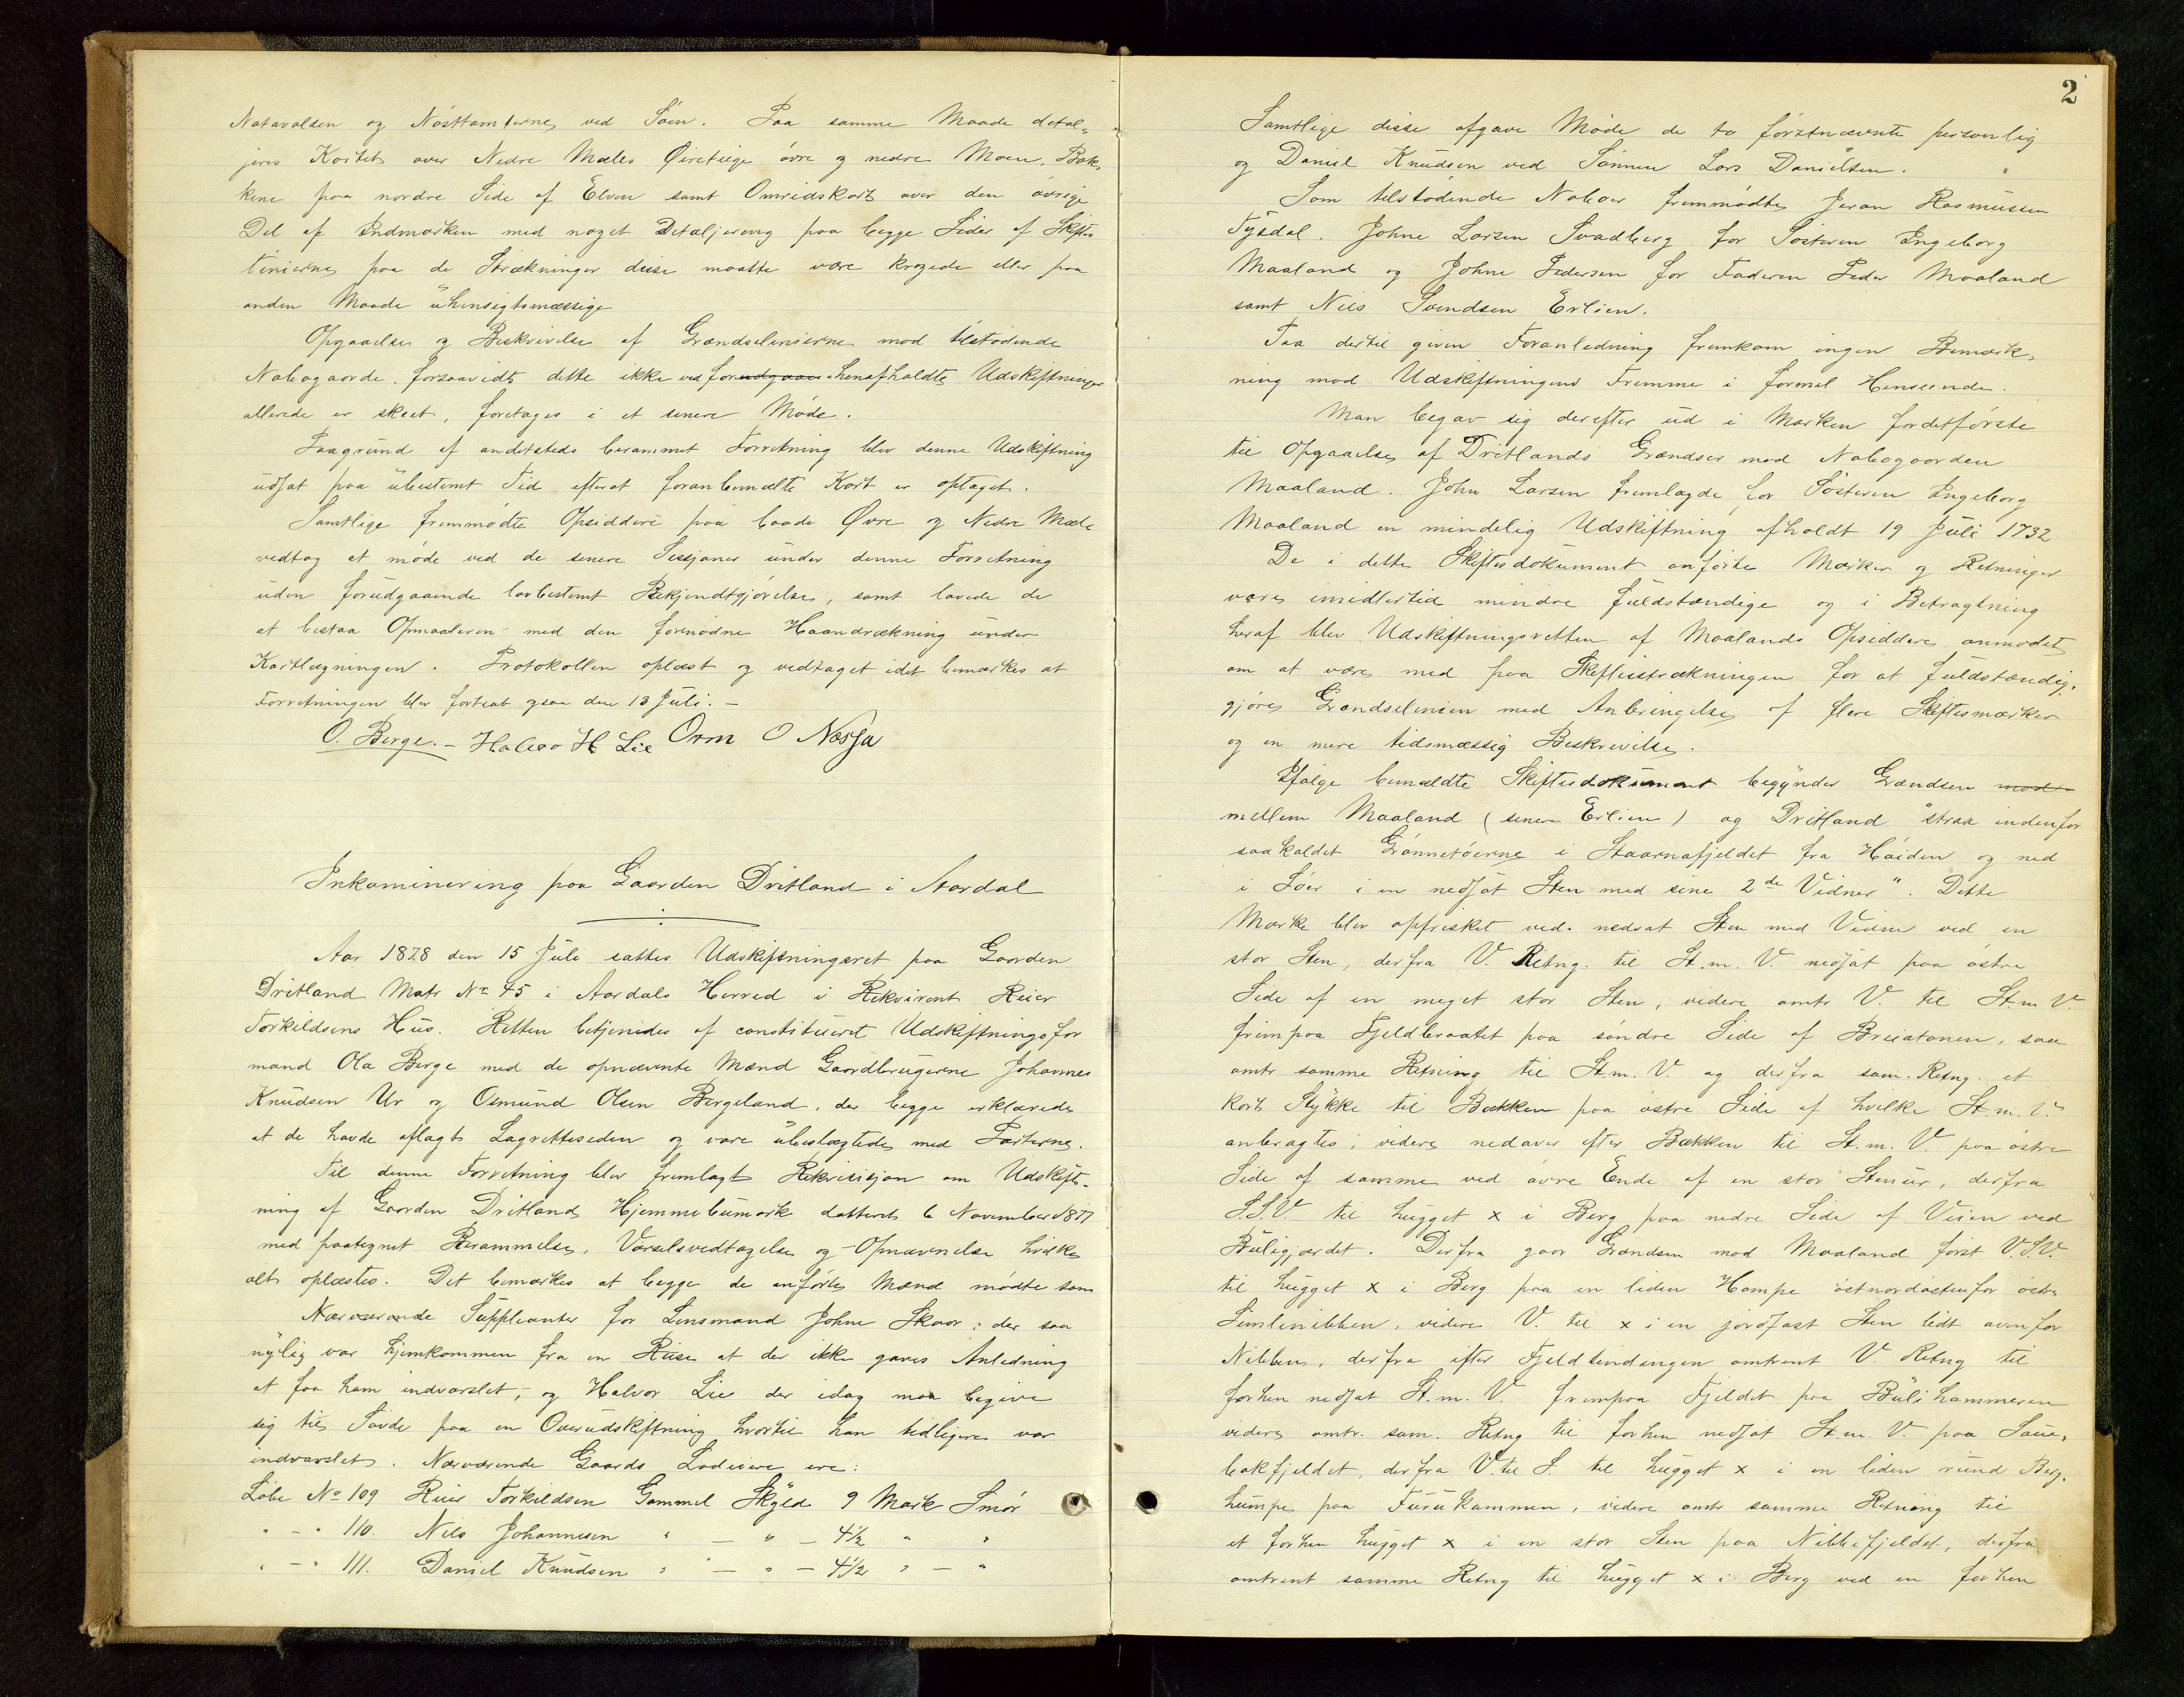 Natavolden og Nøsttomterne ved Søen. Paa samme Maade detal-
jeres Kortet over Nedre Mæles Øireteige øvre og nedre Moen, Bak-
kene paa nordre Side af Elven samt Omridskort over den øvrige
Del af Indmarken med noget Detaljering paa begge Sider af Skifte
linierne paa de Strækninger disse maatte være krogede eller paa
anden Maade uhensigtsmæssige
Opgaaelse og Beskrivelse af Grændselinierne mod tilstødende
Nabogaarde, forsaavidt dette ikke ved forudgaaen henafholdte Udskiftninger
allerede er skeet, foretages i et senere Møde.
Paagrund af andetsteds berammet Forretning blev denne Udskiftning
udsat paa ubestemt Tid efterat foranbemælte Kort er optaget.
Samtlige fremmødte Opsiddere paa baade Øvre og Nedre Mæle
vedtog at møde ved de senere Sessjoner under denne Forretning
uden forudgaaende lovbestemt Bekjendtgjørelse, samt lovede de
at bistaa Opmaaleren med den fornødne Haandrækning under
Kartlegningen. Protokollen oplæst og vedtaget idet bemærkes at
Forretningen blev fortsat ogsaa den 13 Juli. -
O. Berge. - Halvor H Lie Orm O Nessa
Inkaminering paa Gaarden Dritland i Aardal
Aar 1878 den 15 Juli sattes Udskiftningsret paa Gaarden
Dritland Matr No 45 i Aardals Herred i Rekvirent Reier
Torkildsens Hus. Retten betjenedes af constitueret Udskiftningsfor
mand Ola Berge med de opnævnte Mænd Gaardbrugerne Johannes
Knudsen Ur og Osmund Olsen Bergeland, der begge erklærede
at de havde aflagt Lagretteseden og vare ubeslægtede med Parterne.
Til denne Forretning blev fremlagt Rekvisisjon om Udskift-
ning af Gaarden Dritlands Hjemmebumark datteret 6 November 1877
med paategnet Berammelse, Varselsvedtagelse og Opnævnelse hvilke
alt oplæstes. Det bemærkes at begge de anførte Mænd mødte som
Nærværende Suppleanter for Lensmand Johne Skaar; der saa
nylig var hjemkommen fra en Reise at der ikke gaves Anledning
at faa ham indvarslet; og Halvor Lie der idag maa begive
sig til Søvde paa en Overudskiftning hvortil han tidligere var
indvarslet. Nærværende Gaards Lodeiere ere:
Løbe No 109 Reier Torkildsen Gammel Skyld 9 Mark Smør
" - " 110. Nils Johannesen " - " - 4½ " "
" - " 111. Daniel Knudsen " " - " - 4½ " - "
2
Samtlige disse afgave Møde de to førstnævnte personlig
og Daniel Knudsen ved Sønnen Lars Danielsen.
Som tilstødende Naboer fremmødte Jeran Rasmussen
Tysdal. Johne Larsen Svadberg for Søsteren Ingeborg
Maaland og Johne Pedersen for Faderen Peder Maaland
samt Nils Svendsen Erlien.
Paa dertil given Foranledning fremkom ingen Bemærk-
ning mod Udskiftningens Fremme i formel Henseende.
Man begav sig derefter ud i Marken fordetførste
til Opgaaelse af Dritlands Grændser mod Nabogaarden
Maaland. John Larsen fremlagde for Søsteren Ingeborg
Maaland en mindelig Udskiftning afholdt 19 Juli 1732
De i dette Skiftesdokument anførte Mærker og Retninger
vare imidlertid mindre fuldstændige og i Betragtning
heraf blev Udskiftningsretten af Maalands Opsiddere anmodet
om at være med paa Skiftestrækningen for at fuldstændig-
gjøre Grændselinien med Anbringelse af flere Skiftesmærker
og en mere tidsmæssig Beskrivelse.
Ifølge bemældte Skiftesdokument begynder Grændsen mod
mellem Maaland (senere Erlien) og Dritland "strax indenfor
saakaldet Grønnetøerne i Staarnafjeldet fra Høiden og ned
i Søer i en nedsat Sten med sine 2de Vidner". Dette
Mærke blev opfrisket ved nedsat Sten med Vidner ved en
stor Sten, derfra V Retng. til St. m. V. nedsat paa østre
Side af en meget stor Sten, videre omtr V. til St. m V.
frempaa Fjeldbraatet paa søndre Side af Breiatonen, saa
omtr samme Retning til St. m. V. og derfra sam. Retng. et
kort Stykke til Bækken paa østre Side af hvilke St. m. V.
anbragtes; videre nedover efter Bækken til St. m. V. paa østre
Side af samme ved øvre Ende af en stor Stenur, derfra
S.S.V. til hugget x i Berg paa nedre Side af Veien ved
Buligjærdet. Derfra gaar Grændsen mod Maaland først V.S.V.
til hugget x i Berg paa en liden Hompe østnordøstenfor østre
Simlenibben, videre V. til x i en jordfast Sten lidt ovenfor
Nibben, derfra efter Fjeldtindingen omtrent V. Retng til
forhen nedsat St. m. V. frempaa Fjeldet paa Bulihammeren
videre omtr. sam. Retng til forhen nedsat St. m. V. paa Saue-
bakfjeldet, derfra V. til S. til hugget x i en liden rund Berg-
humpe paa Furukammen, videre omtr samme Retning til
et forhen hugget x i en stor Sten paa Nibbefjeldet, derfra
omtrent samme Retng til hugget x i Berg ved en forhen